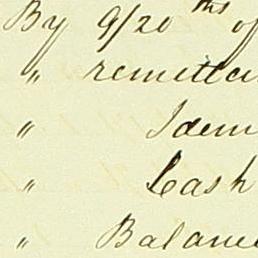 By 9/20 ths of
" remittan
" Idem
" Cash
" Balance